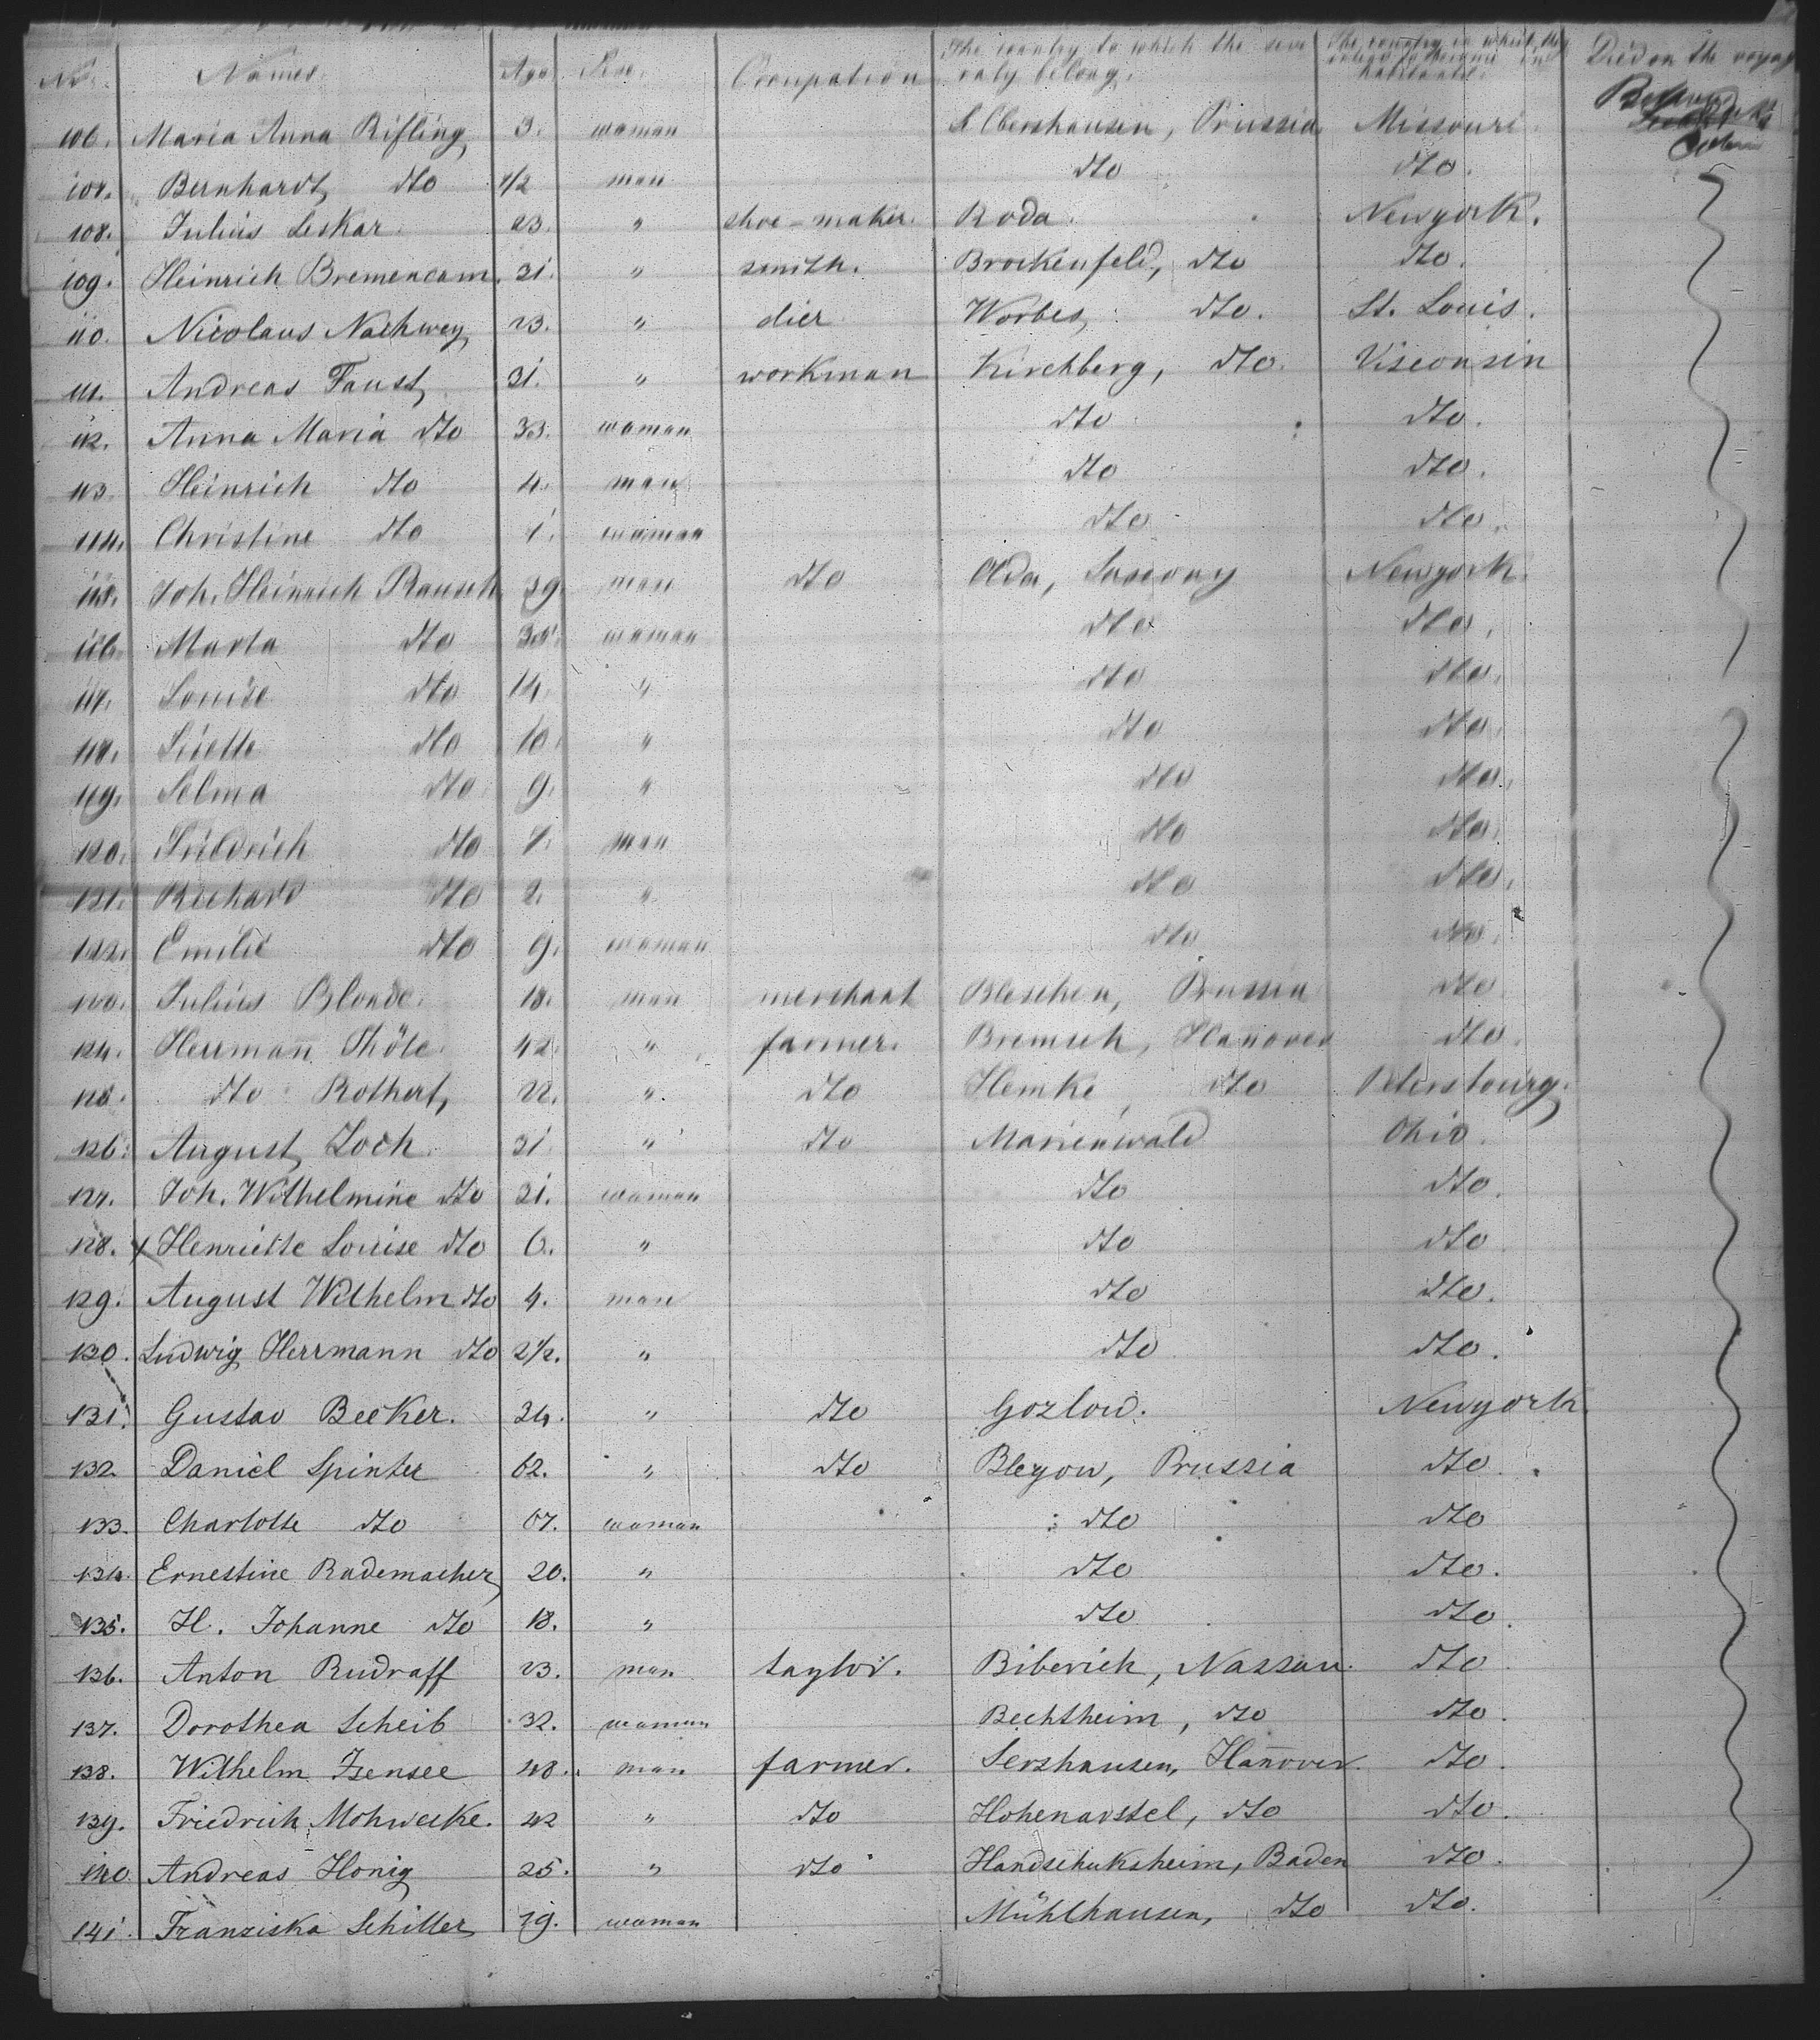 No. Names. Age. Sexe. Occupation The country to which they severaly belong. The country in which they intend to become inhabitants. Died on the voyage
106. Maria Anna Rifling 3. woman Silbershausen, Prussia Missouri.
107. Bernhardt dto 1/2 man dto dto.
108. Julius Leskar. 23. " shoe-maker. Roda. Newyork.
109. Heinrich Bremencam. 31. " smith. Brockenfeld, dto dto.
110. Nicolaus Nachwey 23. " dier Worbes, dto. St. Louis.
111. Andreas Faust, 31. " workman Kirchberg, dto. Visconsin
112. Anna Maria dto 33. woman dto dto.
113. Heinrich dto 4. man dto dto.
114. Christine dto 1. woman dto dto.
115. Joh. Heinrich Rausch 39. man dto Olda, Saxony Newyork.
116. Marta dto 35. woman dto dto.
117. Louise dto 14. " dto dto.
118. Lisette dto 10. " dto dto.
119. Selma dto 9. " dto dto.
120. Fridrich dto 7. man dto dto.
121. Richard dto 2. " dto dto.
122. Emilie dto 9. woman dto dto.
123. Julius Blonde. 18. man merchant Bleschen, Prussia dto
124. Herrmann Thöle. 42. " farmer. Bremsch, Hanover dto.
125. dto Rothert, 22. " dto Hemke, dto Petersbourg.
126. August Zoch. 31. " dto Marienwald Ohio.
127. Joh. Wilhelmine dto 31. woman dto dto.
128. x Henriette Louise dto 6. " dto dto
129. August Wilhelm dto 4. man dto dto.
130. Ludwig Herrmann dto 2 1/2. " dto dto.
131. Gustav Becker. 34. " dto Gozlow. Newyork
132. Daniel Spinter 62. " dto Blezow, Prussia dto.
133. Charlotte dto 67. woman dto dto
134. Ernestine Rademacher 20. " dto dto.
135. H. Johanne dto 18. " dto dto.
136. Anton Rudraff 23. man taylor. Biberich, Nassau. dto
137. Dorothea Scheib 32. woman Bechtheim, dto dto.
138. Wilhelm Isensee 48. man farmer. Sershausen, Hannover. dto.
139. Friedrich Mohwecke. 42 " dto Hohenasstel, dto dto.
140. Andreas Honig 25. " dto Handschuksheim, Baden dto.
141. Franziska Schiller 29. woman Mühlhausen, dto dto.